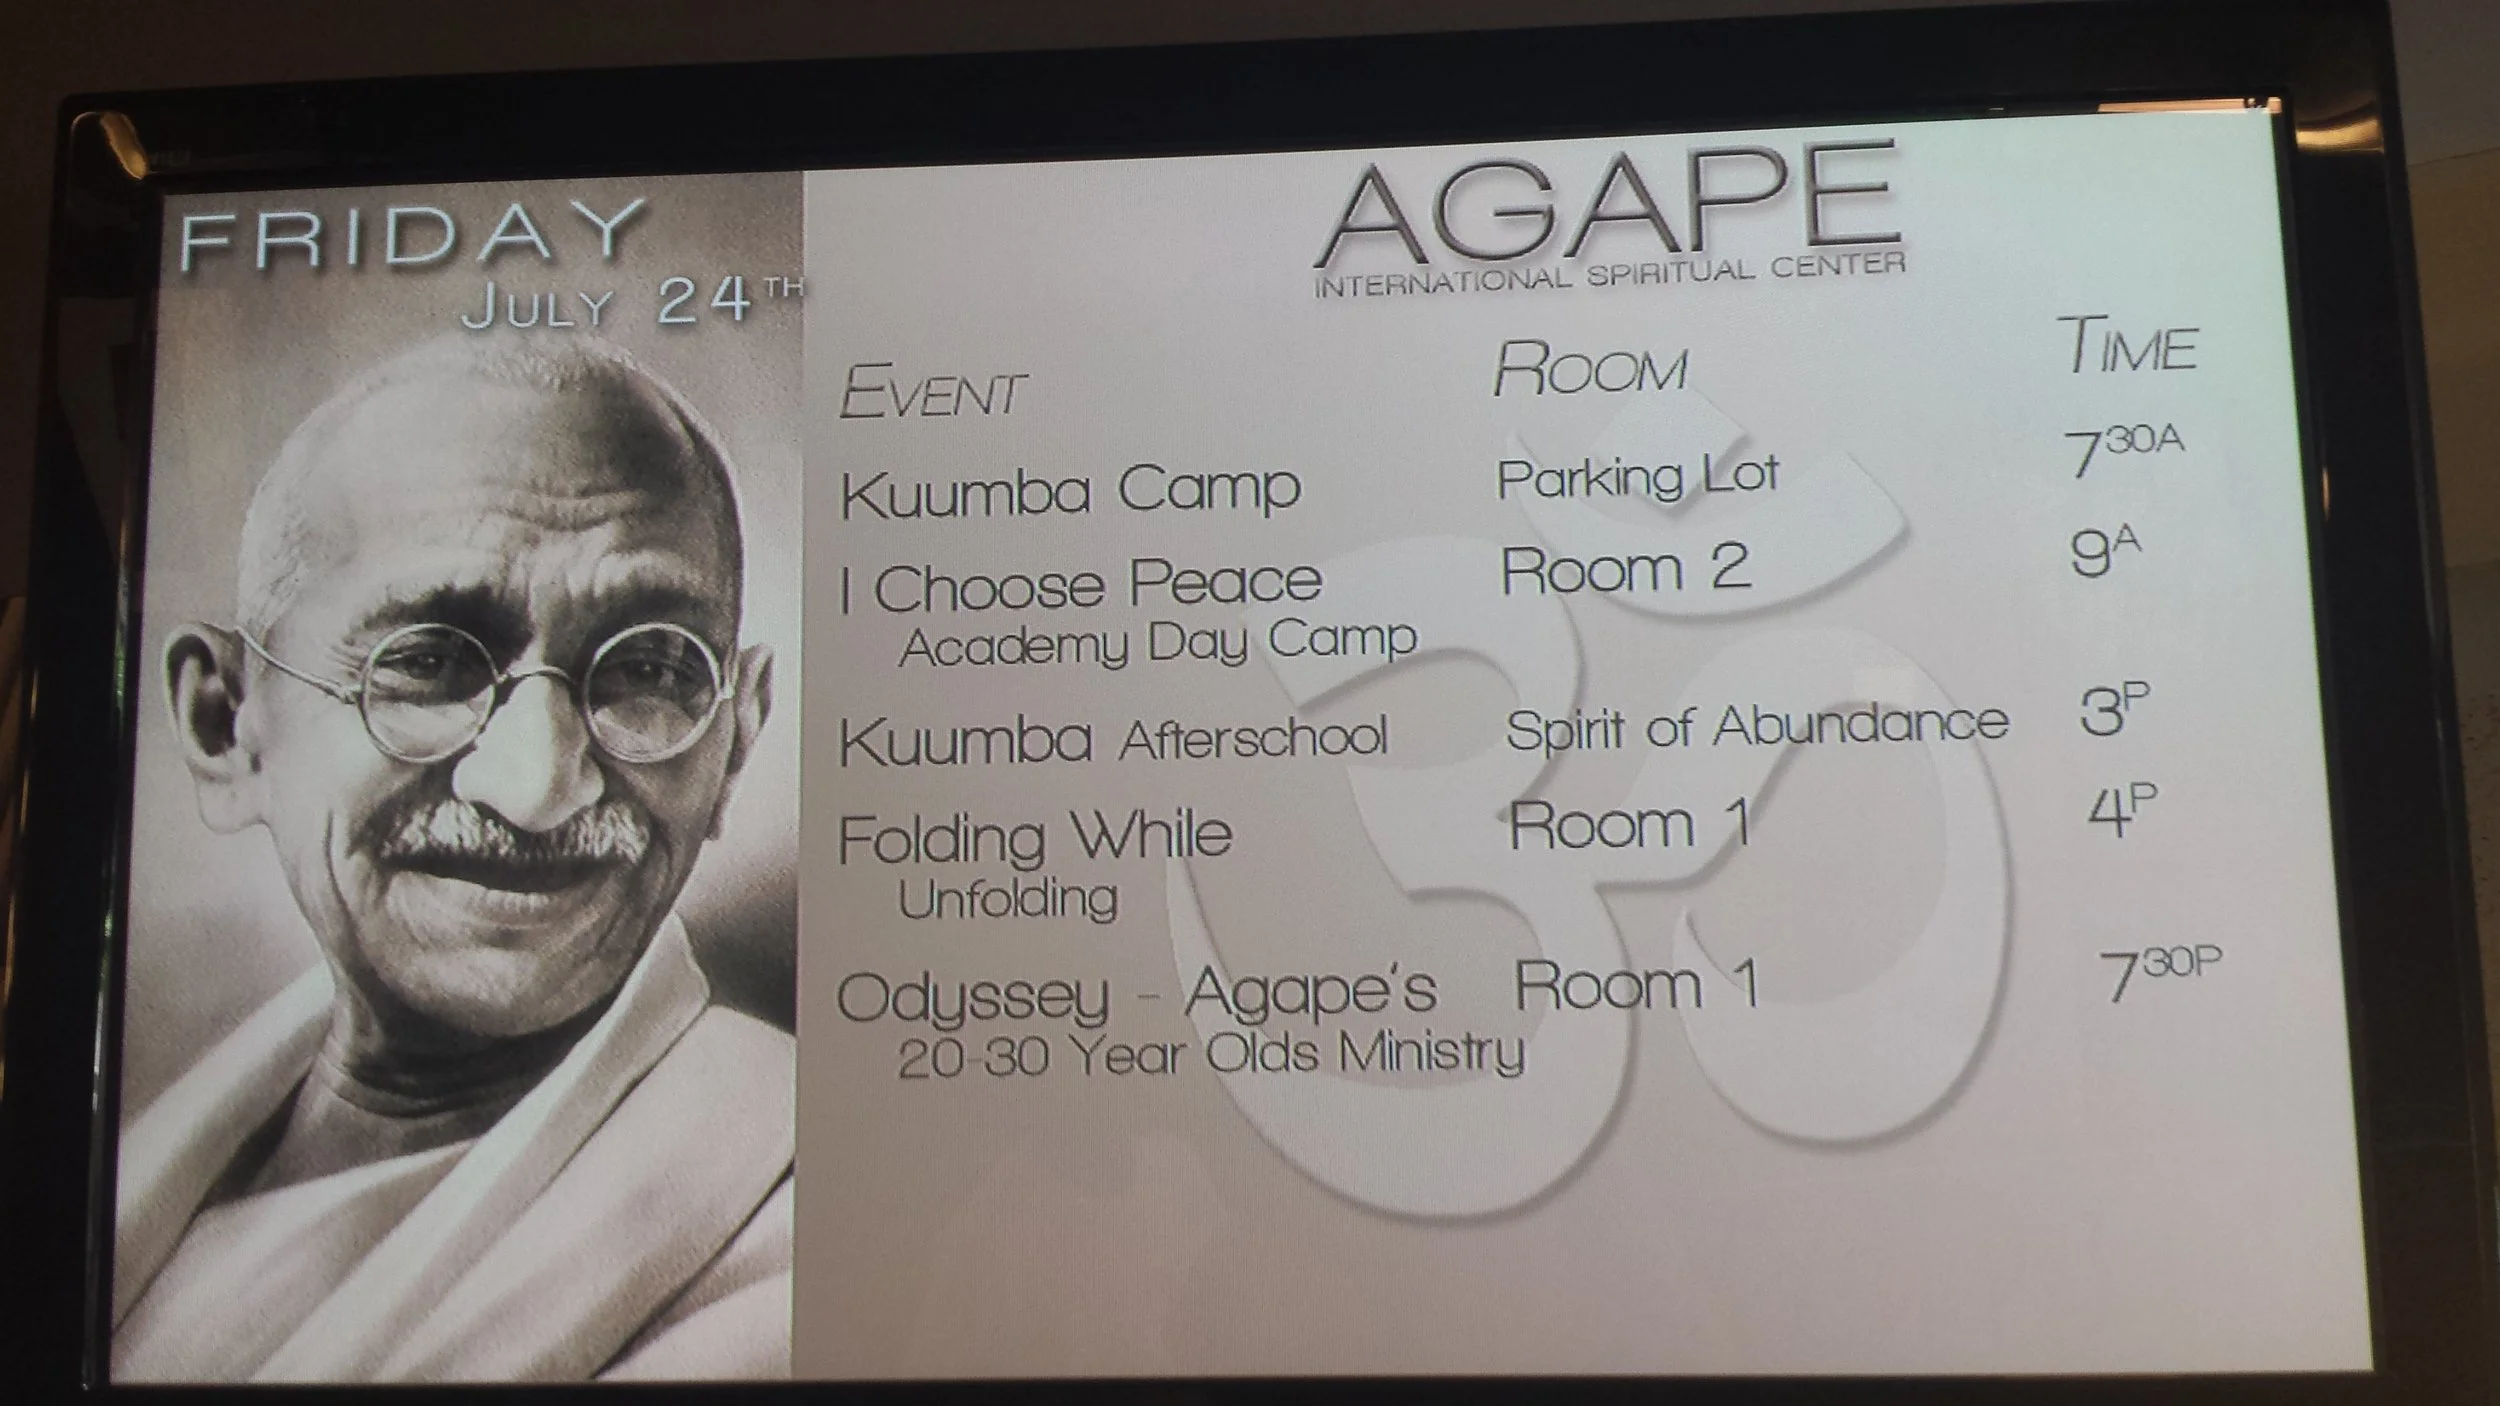 FRIDAY
JULY 24TH
AGAPE
INTERNATIONAL SPIRITUAL CENTER
EVENT ROOM TIME
Kuumba Camp Parking Lot 730A
I Choose Peace Room 2 9A
Academy Day Camp
Kuumba Afterschool Spirit of Abundance 3P
Folding While Room 1 4P
Unfolding
Odyssey - Agape's Room 1 730P
20-30 Year Olds Ministry
ॐ